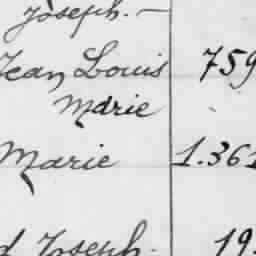 Joseph. —
Jean Louis 759
Marie
Marie 1.361
d Joseph. 19.